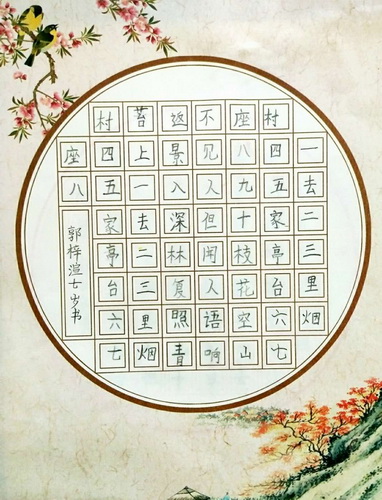 一去二三里烟
村四五家亭台六七
座八九十枝花空山
不见人但闻人语响
返景入深林复照青
苔上一去二三里烟
村四五家亭台六七
座八
郭梓渲七岁书